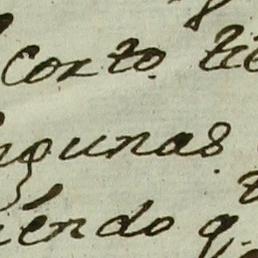 corto. tie
gunas
iendo q.